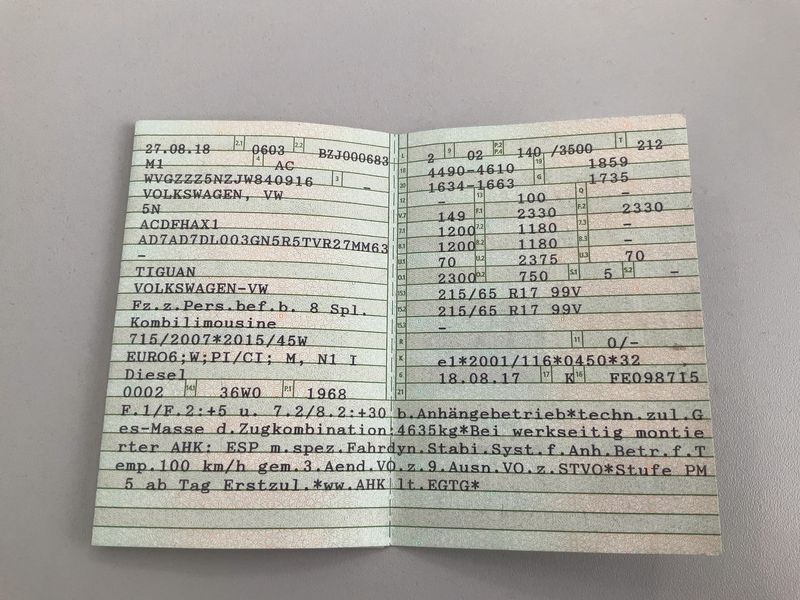 27.08.18 2.1 0603 2.2 BZJ000683
M1 4 AC
WVGZZZ5NZJW840916 3 –
VOLKSWAGEN, VW
5N
ACDFHAX1
AD7AD7DL003GN5R5TVR27MM63
–
TIGUAN
VOLKSWAGEN-VW
Fz.z.Pers.bef.b. 8 Spl.
Kombilimousine
715/2007*2015/45W
EURO6;W;PI/CI; M, N1 I
Diesel
0002 14.1 36W0 P.1 1968
L 2 9 02 P.2 P.4 140 /3500 T 212
18 4490-4610 19 1859
20 1634-1663 G 1735
12 – 13 100 Q –
V.7 149 F.1 2330 F.2 2330
7.1 1200 7.2 1180 7.3 –
8.1 1200 8.2 1180 8.3 –
U.1 70 U.2 2375 U.3 70
O.1 2300 O.2 750 S.1 5 S.2 –
15.1 215/65 R17 99V
15.2 215/65 R17 99V
15.3 –
R 11 0/–
K e1*2001/116*0450*32
6 18.08.17 17 K 16 FE098715
21
F.1/F.2:+5 u. 7.2/8.2:+30 b.Anhängebetrieb*techn.zul.G
es-Masse d.Zugkombination:4635kg*Bei werkseitig montie
rter AHK: ESP m.spez.Fahrdyn.Stabi.Syst.f.Anh.Betr.f.T
emp.100 km/h gem.3.Aend.VO.z.9.Ausn.VO.z.STVO*Stufe PM
5 ab Tag Erstzul.*ww.AHK lt.EGTG*